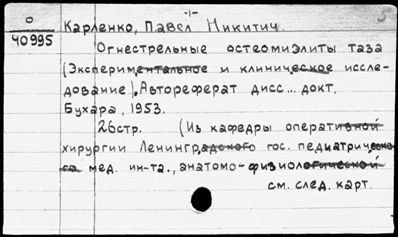 -1-
О
40995
Карленко, Павел Никитич.
Огнестрельные остеомиэлиты таза
(Экспериментальное и клиническое иссле-
дование). Автореферат дисс... докт.
Бухара, 1953.
26стр. (Из кафедры оперативной
хирургии Ленинградского гос. педиатрическо-
го мед. ин-та., анатомо-физиологической
см. след. карт.